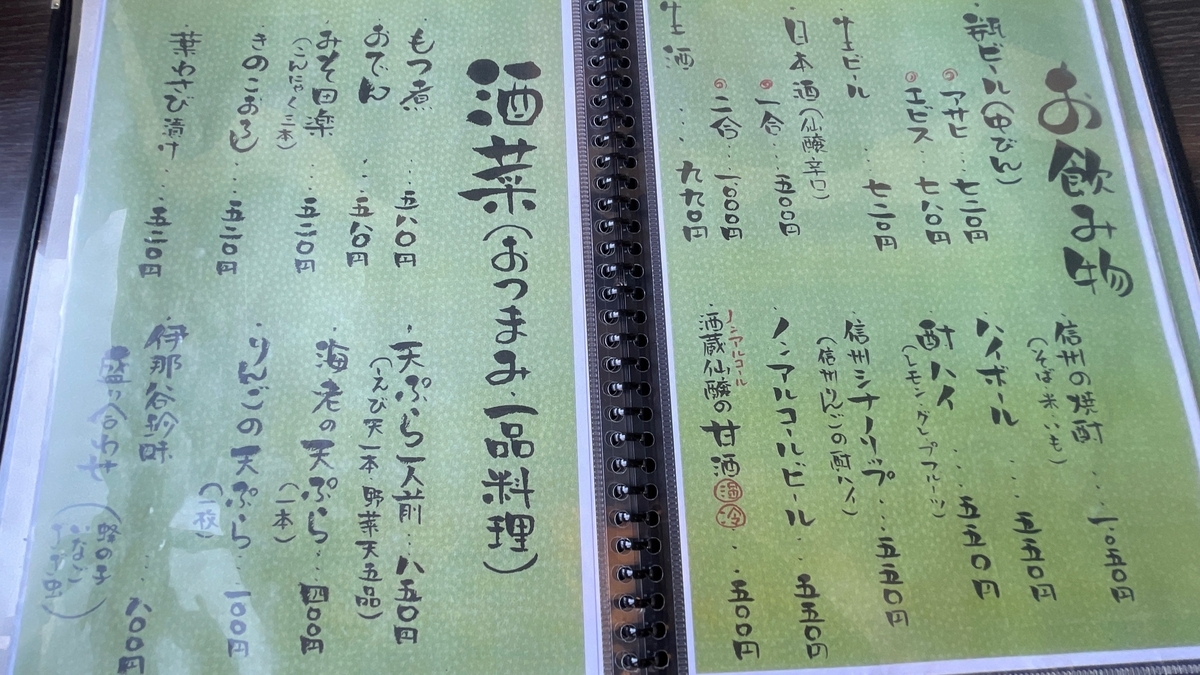 お飲み物
・瓶ビール(中びん)
◎アサヒ・・・七二〇円
◎エビス・・・七八〇円
・生ビール・・・七二〇円
・日本酒(仙醸辛口)
◎一合・・・五〇〇円
◎二合・・・一、〇〇〇円
生酒・・・九九〇円
・信州の焼酎・・・一、〇五〇円
(そば・米・いも)
・ハイボール・・・五五〇円
・酎ハイ・・・五五〇円
(レモン・グレープフルーツ)
・信州シナノリップ・・・五五〇円
(信州りんごの酎ハイ)
・ノンアルコールビール・・・五五〇円
ノンアルコール
・酒蔵仙醸の甘酒 温 冷・・・五〇〇円
酒菜(おつまみ・一品料理)
・もつ煮・・・五八〇円
・おでん・・・五八〇円
・みそ田楽・・・五二〇円
(こんにゃく三本)
・きのこおろし・・・五二〇円
・葉わさび漬け・・・五二〇円
・天ぷら一人前・・・八五〇円
(えび天一本・野菜天五品)
・海老の天ぷら・・・四〇〇円
(一本)
・りんごの天ぷら・・・一〇〇円
(一枚)
・伊那谷珍味
盛り合わせ・・・八〇〇円
(蜂の子
いなご
ザザ虫)